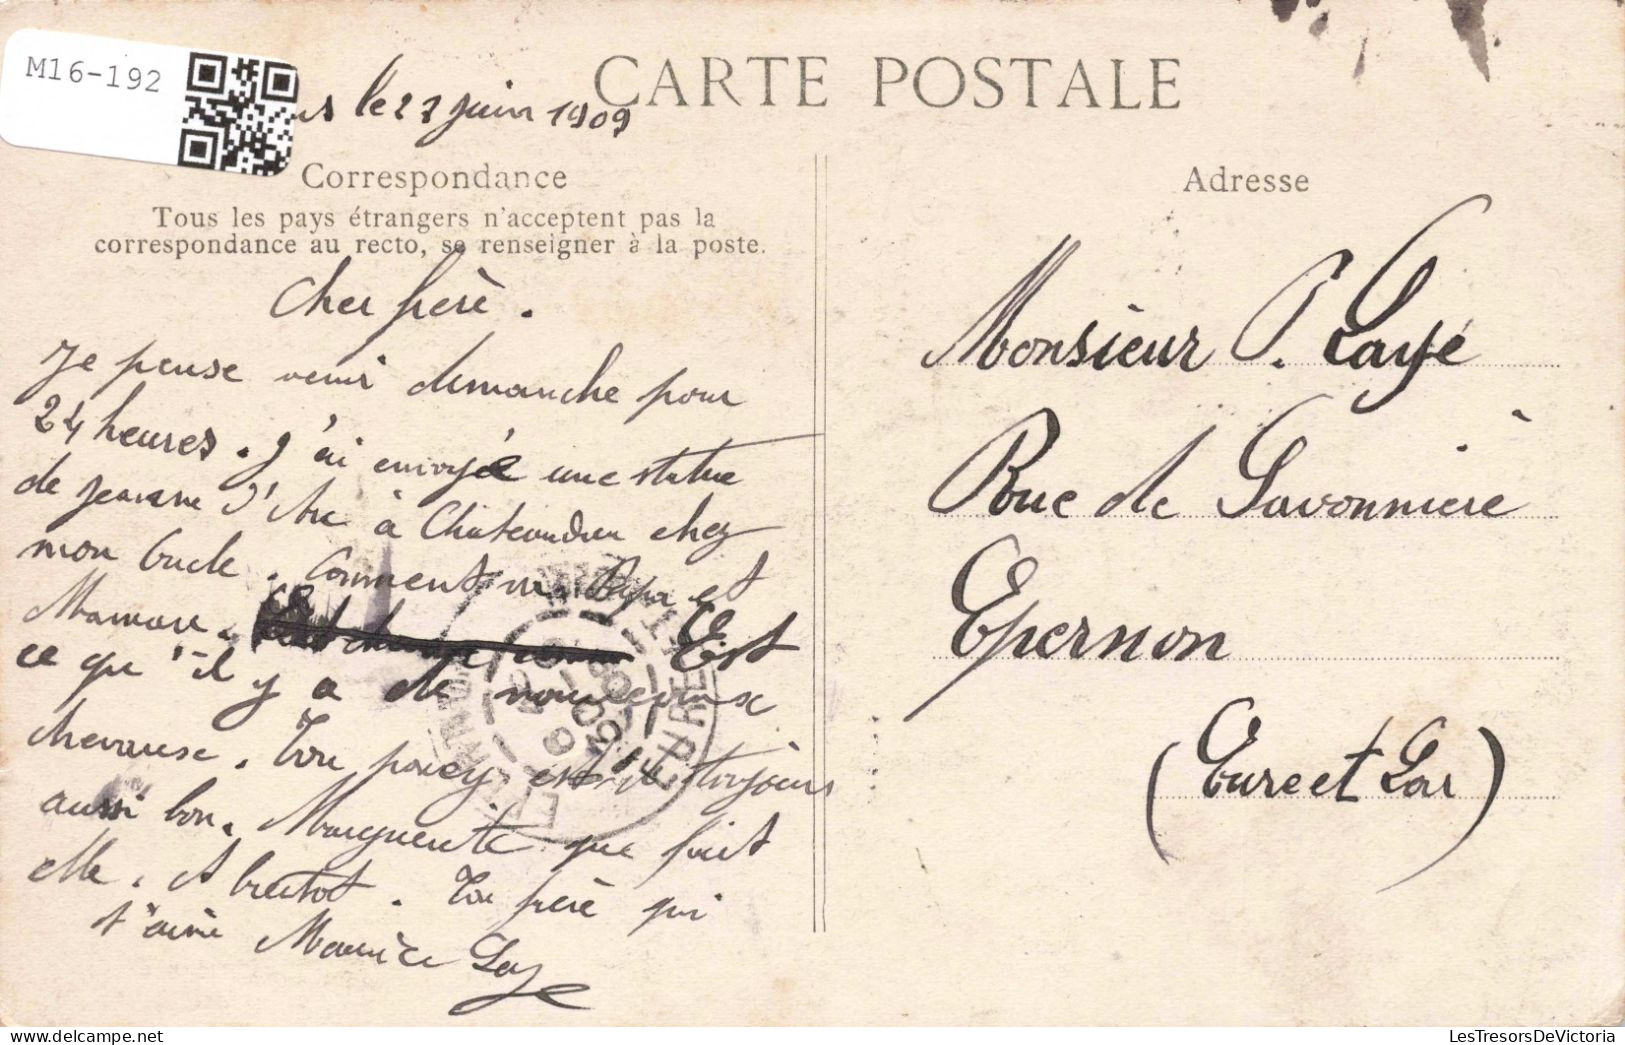 M16-192
CARTE POSTALE
le 27 juin 1909
Correspondance
Tous les pays étrangers n'acceptent pas la
correspondance au recto, se renseigner à la poste.
Cher frère.
Je pense venir dimanche pour
24 heures. J'ai envoyée une statue
de Jeanne d'Arc à Chateaudun chez
mon oncle. Comment va Papa et
Maman. Est
ce qu'il y a de nouveau
chevause. Ton est il toujours
aussi bon. Marguerite que fait
elle. A bientot. Ton frère qui
t'aime Maurice Laye
Adresse
Monsieur P. Layé
Rue de Savonnière
Epernon
(Eure et Loir)
EURE
LesTresorsDeVictoria
delcampe.net